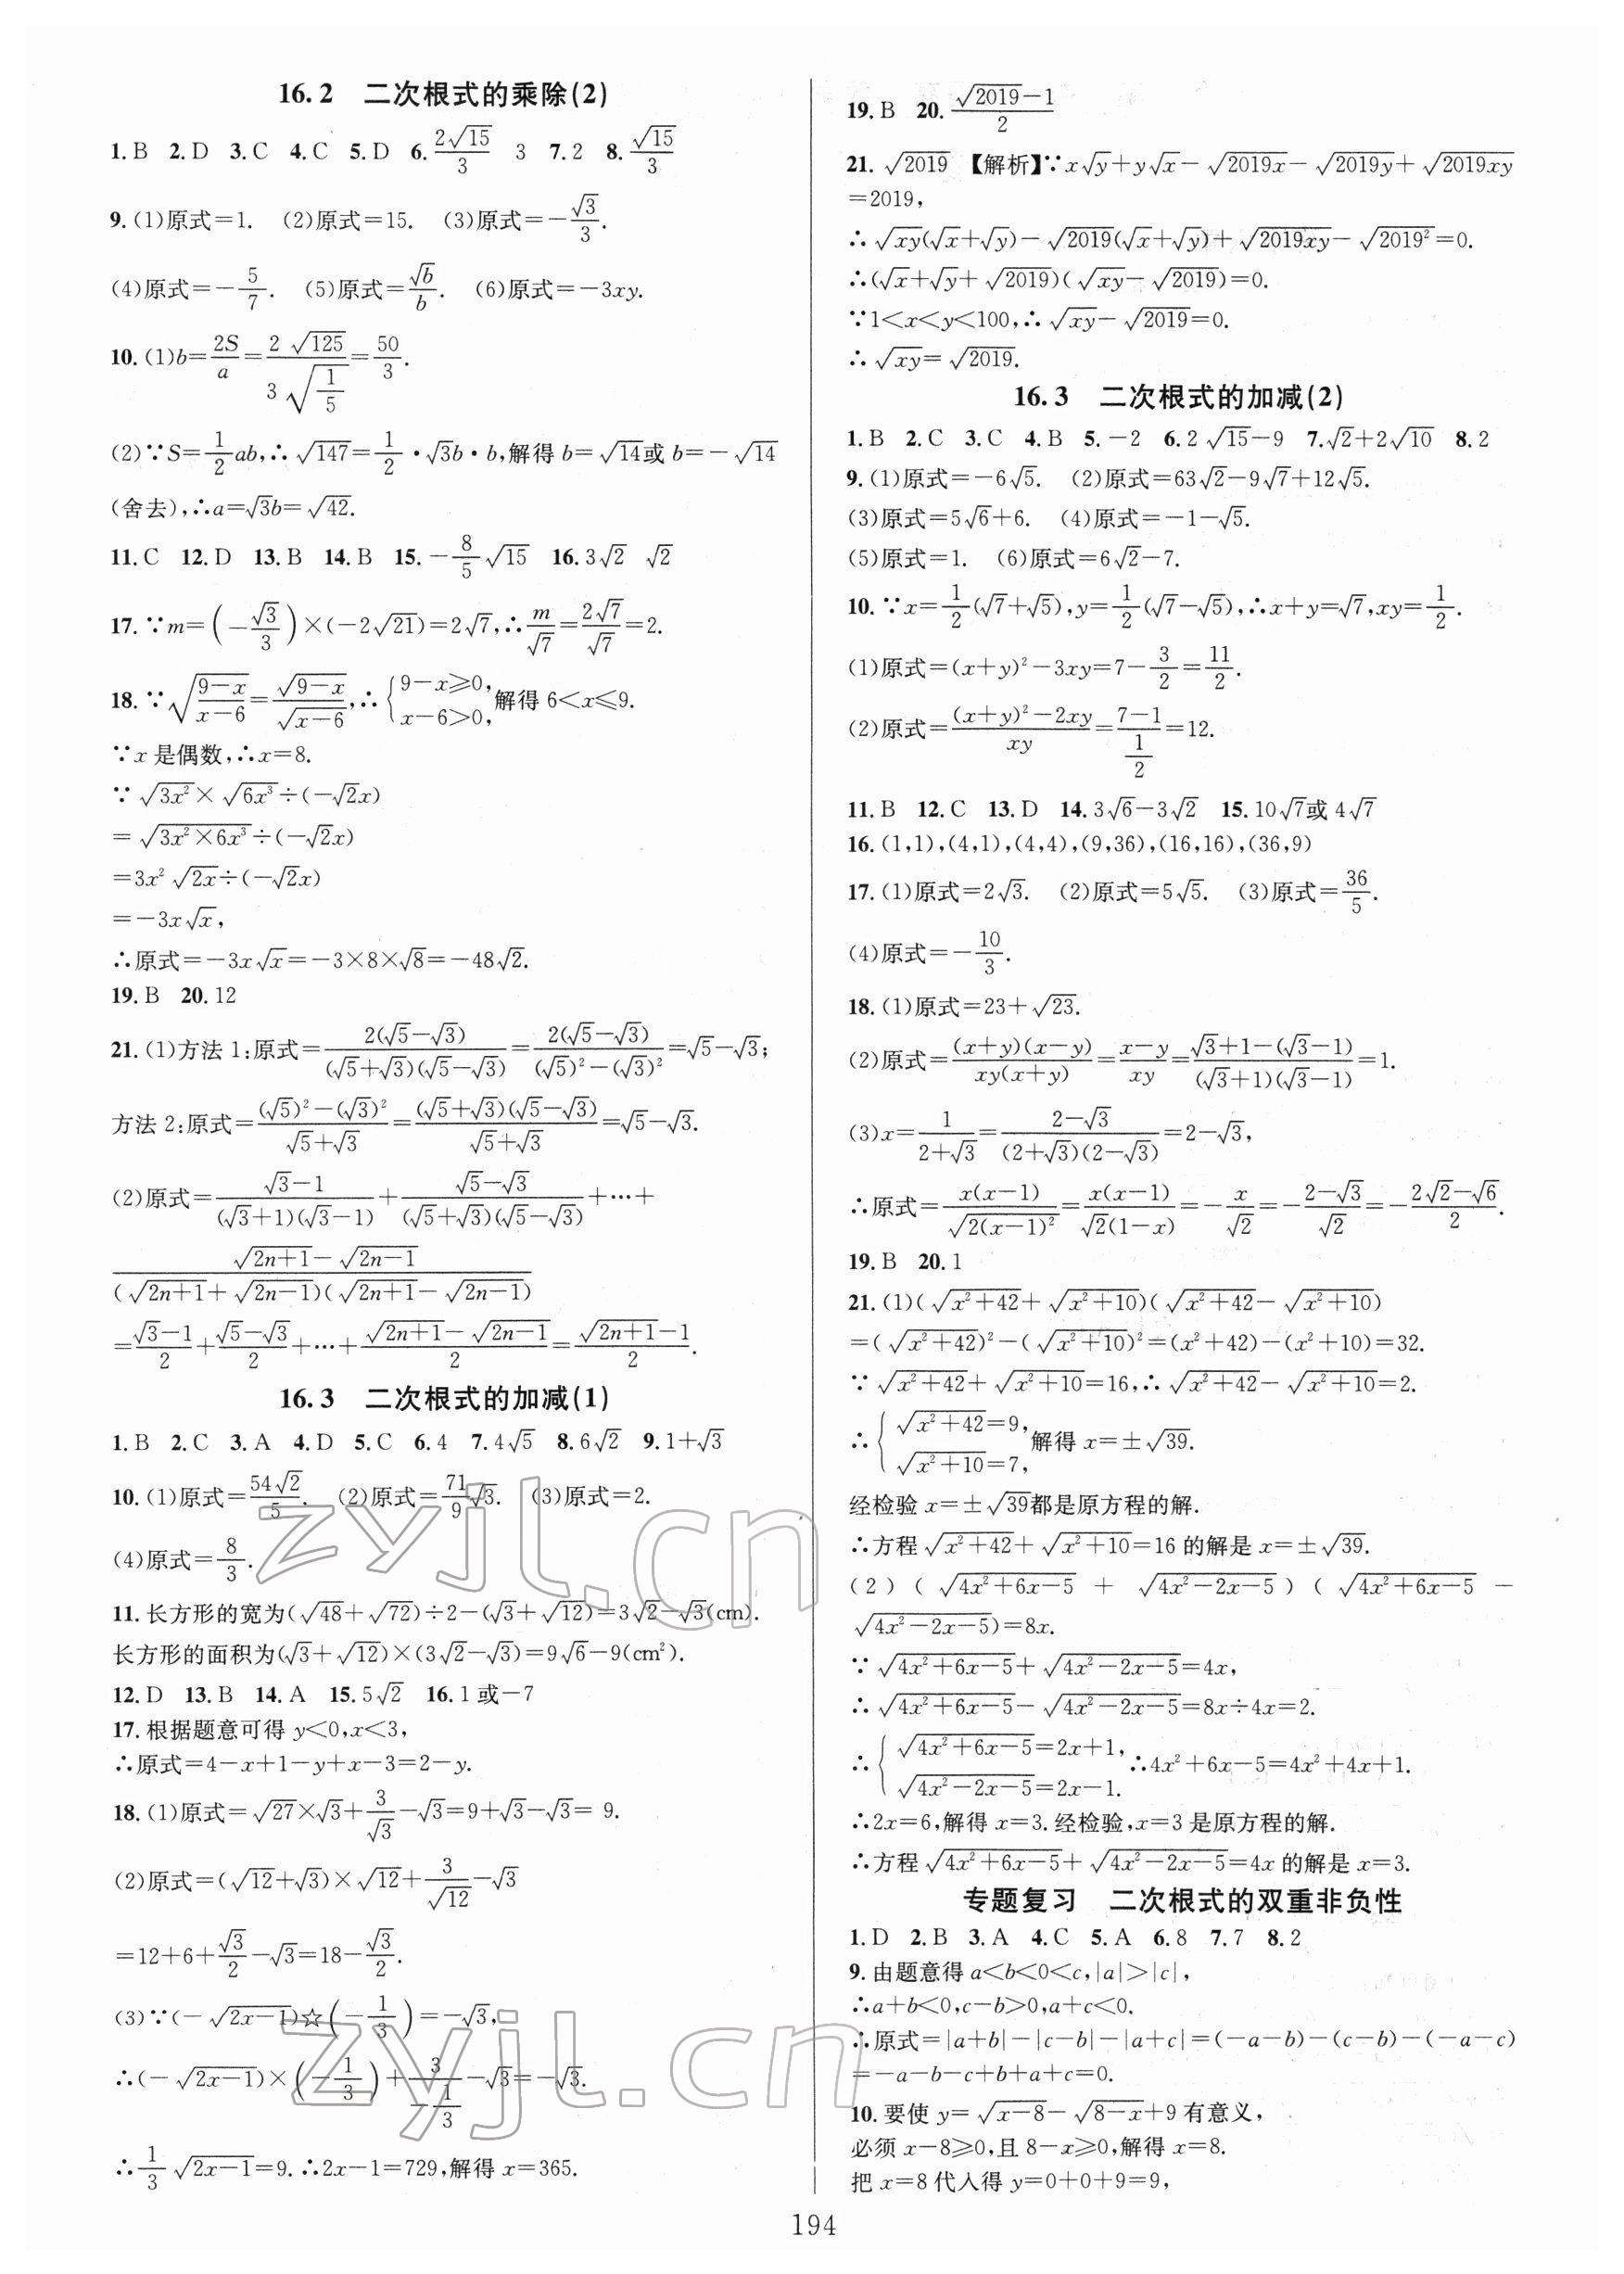 16.2 二次根式的乘除(2)
1.B 2.D 3.C 4.C 5.D 6.2√15/3 3 7.2 8.√15/3
9.(1)原式=1. (2)原式=15. (3)原式=-√3/3.
(4)原式=-5/7. (5)原式=√b/b. (6)原式=-3xy.
10.(1)b=2S/a=2√125/(3√(1/5))=50/3.
(2)∵S=1/2ab,∴√147=1/2·√3b·b,解得b=√14或b=-√14
(舍去),∴a=√3b=√42.
11.C 12.D 13.B 14.B 15.-8/5√15 16.3√2 √2
17.∵m=(-√3/3)×(-2√21)=2√7,∴m/√7=2√7/√7=2.
18.∵√((9-x)/(x-6))=√(9-x)/√(x-6),∴{9-x≥0, x-6>0,解得6<x≤9.
∵x是偶数,∴x=8.
∵√(3x²)×√(6x³)÷(-√2x)
=√(3x²×6x³)÷(-√2x)
=3x²√(2x)÷(-√2x)
=-3x√x,
∴原式=-3x√x=-3×8×√8=-48√2.
19.B 20.12
21.(1)方法1:原式=2(√5-√3)/((√5+√3)(√5-√3))=2(√5-√3)/((√5)²-(√3)²)=√5-√3;
方法2:原式=((√5)²-(√3)²)/(√5+√3)=(√5+√3)(√5-√3)/(√5+√3)=√5-√3.
(2)原式=(√3-1)/((√3+1)(√3-1))+(√5-√3)/((√5+√3)(√5-√3))+…+
(√(2n+1)-√(2n-1))/((√(2n+1)+√(2n-1))(√(2n+1)-√(2n-1)))
=(√3-1)/2+(√5-√3)/2+…+(√(2n+1)-√(2n-1))/2=(√(2n+1)-1)/2.
16.3 二次根式的加减(1)
1.B 2.C 3.A 4.D 5.C 6.4 7.4√5 8.6√2 9.1+√3
10.(1)原式=54√2/5. (2)原式=71/9√3. (3)原式=2.
(4)原式=8/3.
11.长方形的宽为(√48+√72)÷2-(√3+√12)=3√2-√3(cm).
长方形的面积为(√3+√12)×(3√2-√3)=9√6-9(cm²).
12.D 13.B 14.A 15.5√2 16.1或-7
17.根据题意可得y<0,x<3,
∴原式=4-x+1-y+x-3=2-y.
18.(1)原式=√27×√3+3/√3-√3=9+√3-√3=9.
(2)原式=(√12+√3)×√12+3/√12-√3
=12+6+√3/2-√3=18-√3/2.
(3)∵(-√(2x-1))☆(-1/3)=-√3,
∴(-√(2x-1))×(-1/3)+3/(-1/3)-√3=-√3.
∴1/3√(2x-1)=9.∴2x-1=729,解得x=365.
19.B 20.(√2019-1)/2
21.√2019 【解析】∵x√y+y√x-√(2019x)-√(2019y)+√(2019xy)
=2019,
∴√(xy)(√x+√y)-√2019(√x+√y)+√(2019xy)-√(2019²)=0.
∴(√x+√y+√2019)(√(xy)-√2019)=0.
∵1<x<y<100,∴√(xy)-√2019=0.
∴√(xy)=√2019.
16.3 二次根式的加减(2)
1.B 2.C 3.C 4.B 5.-2 6.2√15-9 7.√2+2√10 8.2
9.(1)原式=-6√5. (2)原式=63√2-9√7+12√5.
(3)原式=5√6+6. (4)原式=-1-√5.
(5)原式=1. (6)原式=6√2-7.
10.∵x=1/2(√7+√5),y=1/2(√7-√5),∴x+y=√7,xy=1/2.
(1)原式=(x+y)²-3xy=7-3/2=11/2.
(2)原式=((x+y)²-2xy)/xy=(7-1)/(1/2)=12.
11.B 12.C 13.D 14.3√6-3√2 15.10√7或4√7
16.(1,1),(4,1),(4,4),(9,36),(16,16),(36,9)
17.(1)原式=2√3. (2)原式=5√5. (3)原式=36/5.
(4)原式=-10/3.
18.(1)原式=23+√23.
(2)原式=(x+y)(x-y)/(xy(x+y))=(x-y)/xy=(√3+1-(√3-1))/((√3+1)(√3-1))=1.
(3)x=1/(2+√3)=(2-√3)/((2+√3)(2-√3))=2-√3,
∴原式=x(x-1)/√(2(x-1)²)=x(x-1)/(√2(1-x))=-x/√2=-(2-√3)/√2=-(2√2-√6)/2.
19.B 20.1
21.(1)(√(x²+42)+√(x²+10))(√(x²+42)-√(x²+10))
=(√(x²+42))²-(√(x²+10))²=(x²+42)-(x²+10)=32.
∵√(x²+42)+√(x²+10)=16,∴√(x²+42)-√(x²+10)=2.
∴{√(x²+42)=9, √(x²+10)=7,解得x=±√39.
经检验x=±√39都是原方程的解.
∴方程√(x²+42)+√(x²+10)=16的解是x=±√39.
(2)(√(4x²+6x-5)+√(4x²-2x-5))(√(4x²+6x-5)-
√(4x²-2x-5))=8x.
∵√(4x²+6x-5)+√(4x²-2x-5)=4x,
∴√(4x²+6x-5)-√(4x²-2x-5)=8x÷4x=2.
∴{√(4x²+6x-5)=2x+1, √(4x²-2x-5)=2x-1.∴4x²+6x-5=4x²+4x+1.
∴2x=6,解得x=3.经检验,x=3是原方程的解.
∴方程√(4x²+6x-5)+√(4x²-2x-5)=4x的解是x=3.
专题复习 二次根式的双重非负性
1.D 2.B 3.A 4.C 5.A 6.8 7.7 8.2
9.由题意得a<b<0<c,|a|>|c|,
∴a+b<0,c-b>0,a+c<0.
∴原式=|a+b|-|c-b|-|a+c|=(-a-b)-(c-b)-(-a-c)
=-a-b-c+b+a+c=0.
10.要使y=√(x-8)-√(8-x)+9有意义,
必须x-8≥0,且8-x≥0,解得x=8.
把x=8代入得y=0+0+9=9,
194
zyjl.cn
zyjl.cn